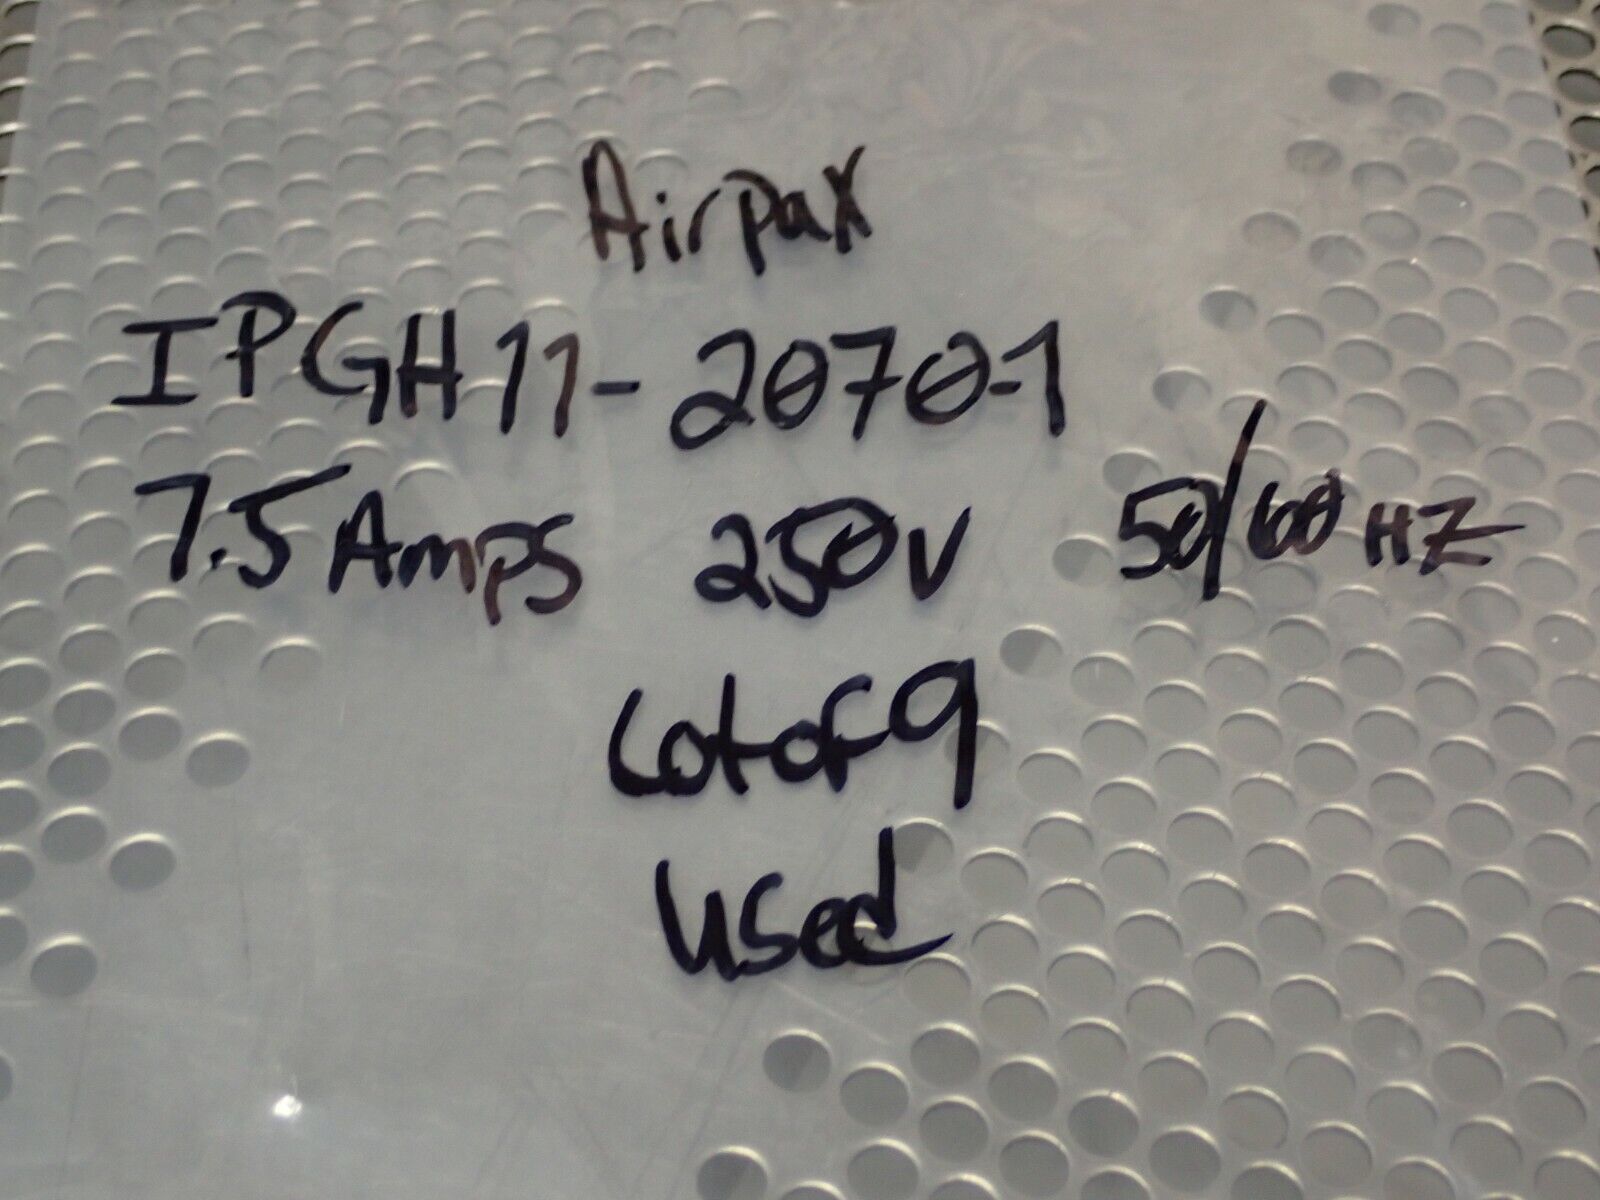 Airpax
IPGH11-2070-1
7.5 Amps 250V 50/60 HZ
Lot of 9
Used